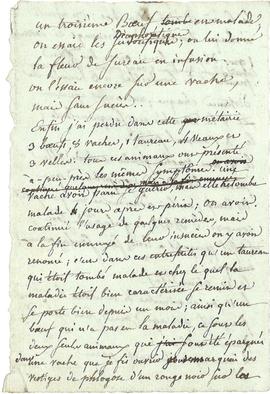 un troisieme Bœuf tombe en malade
on essaie les Diaphoretique sudorifique; on lui donne
la fleur de sureau en infusion.
on l'essaïe encore sur une vache,
mais sans succes..
Enfin j'ai perdu dans cette métairie
3 bœufs, 3 vaches, 1 taureau, 4 veaux et
3 velles: tous ces animaux ont présenté
a-peu-près les mêmes symptômes. une
vache avoit paru se guérir, mais elle retomba
malade & jours après et périt; on avoit
continué l'usage de quelques remedes, mais
à la fin ennuyé de leur insuccès on y avoit
renoncé; c'est dans ces entrefaites qu'un taureau
qui étoit tombé malade et chez lequel la
maladie étoit bien caractérisée se remit et
se porte bien depuis un mois; ainsi qu'un
bœuf qui n'a pas eu la maladie, ce sont les
deux seuls animaux que j'ai épargnés
dans une vache que je fis ouvrir marquait des
vestiges de phlogose d'un rouge noir sur les